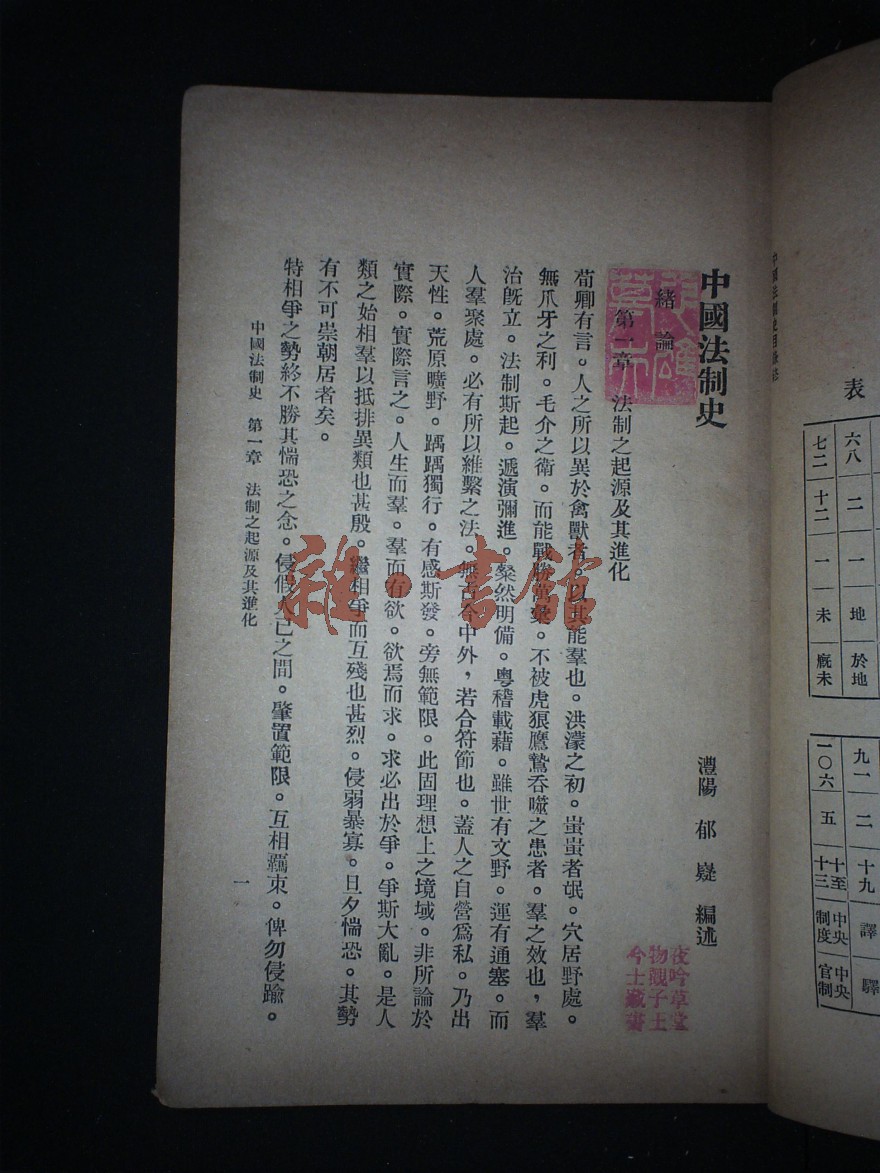 中國法制史
澧陽 郁嶷 編述
緒論
第一章 法制之起源及其進化
荀卿有言。人之所以異於禽獸者。以其能羣也。洪濛之初。蚩蚩者氓。穴居野處。
無爪牙之利。毛介之衛。而能戰勝萬彙。不被虎狼鷹鷙吞噬之患者。羣之效也，羣
治旣立。法制斯起。遞演彌進。粲然明備。粵稽載藉。雖世有文野。運有通塞。而
人羣聚處。必有所以維繫之法。無古今中外，若合符節也。蓋人之自營爲私。乃出
天性。荒原曠野。踽踽獨行。有感斯發。旁無範限。此固理想上之境域。非所論於
實際。實際言之。人生而羣。羣而有欲。欲焉而求。求必出於爭。爭斯大亂。是人
類之始相羣以抵排異類也甚殷。繼相爭而互殘也甚烈。侵弱暴寡。旦夕惴恐。其勢
有不可崇朝居者矣。
特相爭之勢終不勝其惴恐之念。侵假人己之間。肇置範限。互相羈束。俾勿侵踰。
中國法制史 第一章 法制之起源及其進化
一
夜吟草堂
物觀子王
今士藏書
雜·書館
中國法制史
表
六八 二 一 地 於地
七二 十二 一 未 厩未
九一 二 十九 譯 驛
一〇六 五 十至十三 中央制度 中央官制